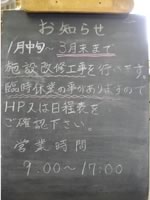 お知らせ
1月中旬～3月末まで
施設改修工事を行います。
臨時休業の事がありますので
HP又は日程表を
ご確認下さい。
営業時間
9:00～17:00